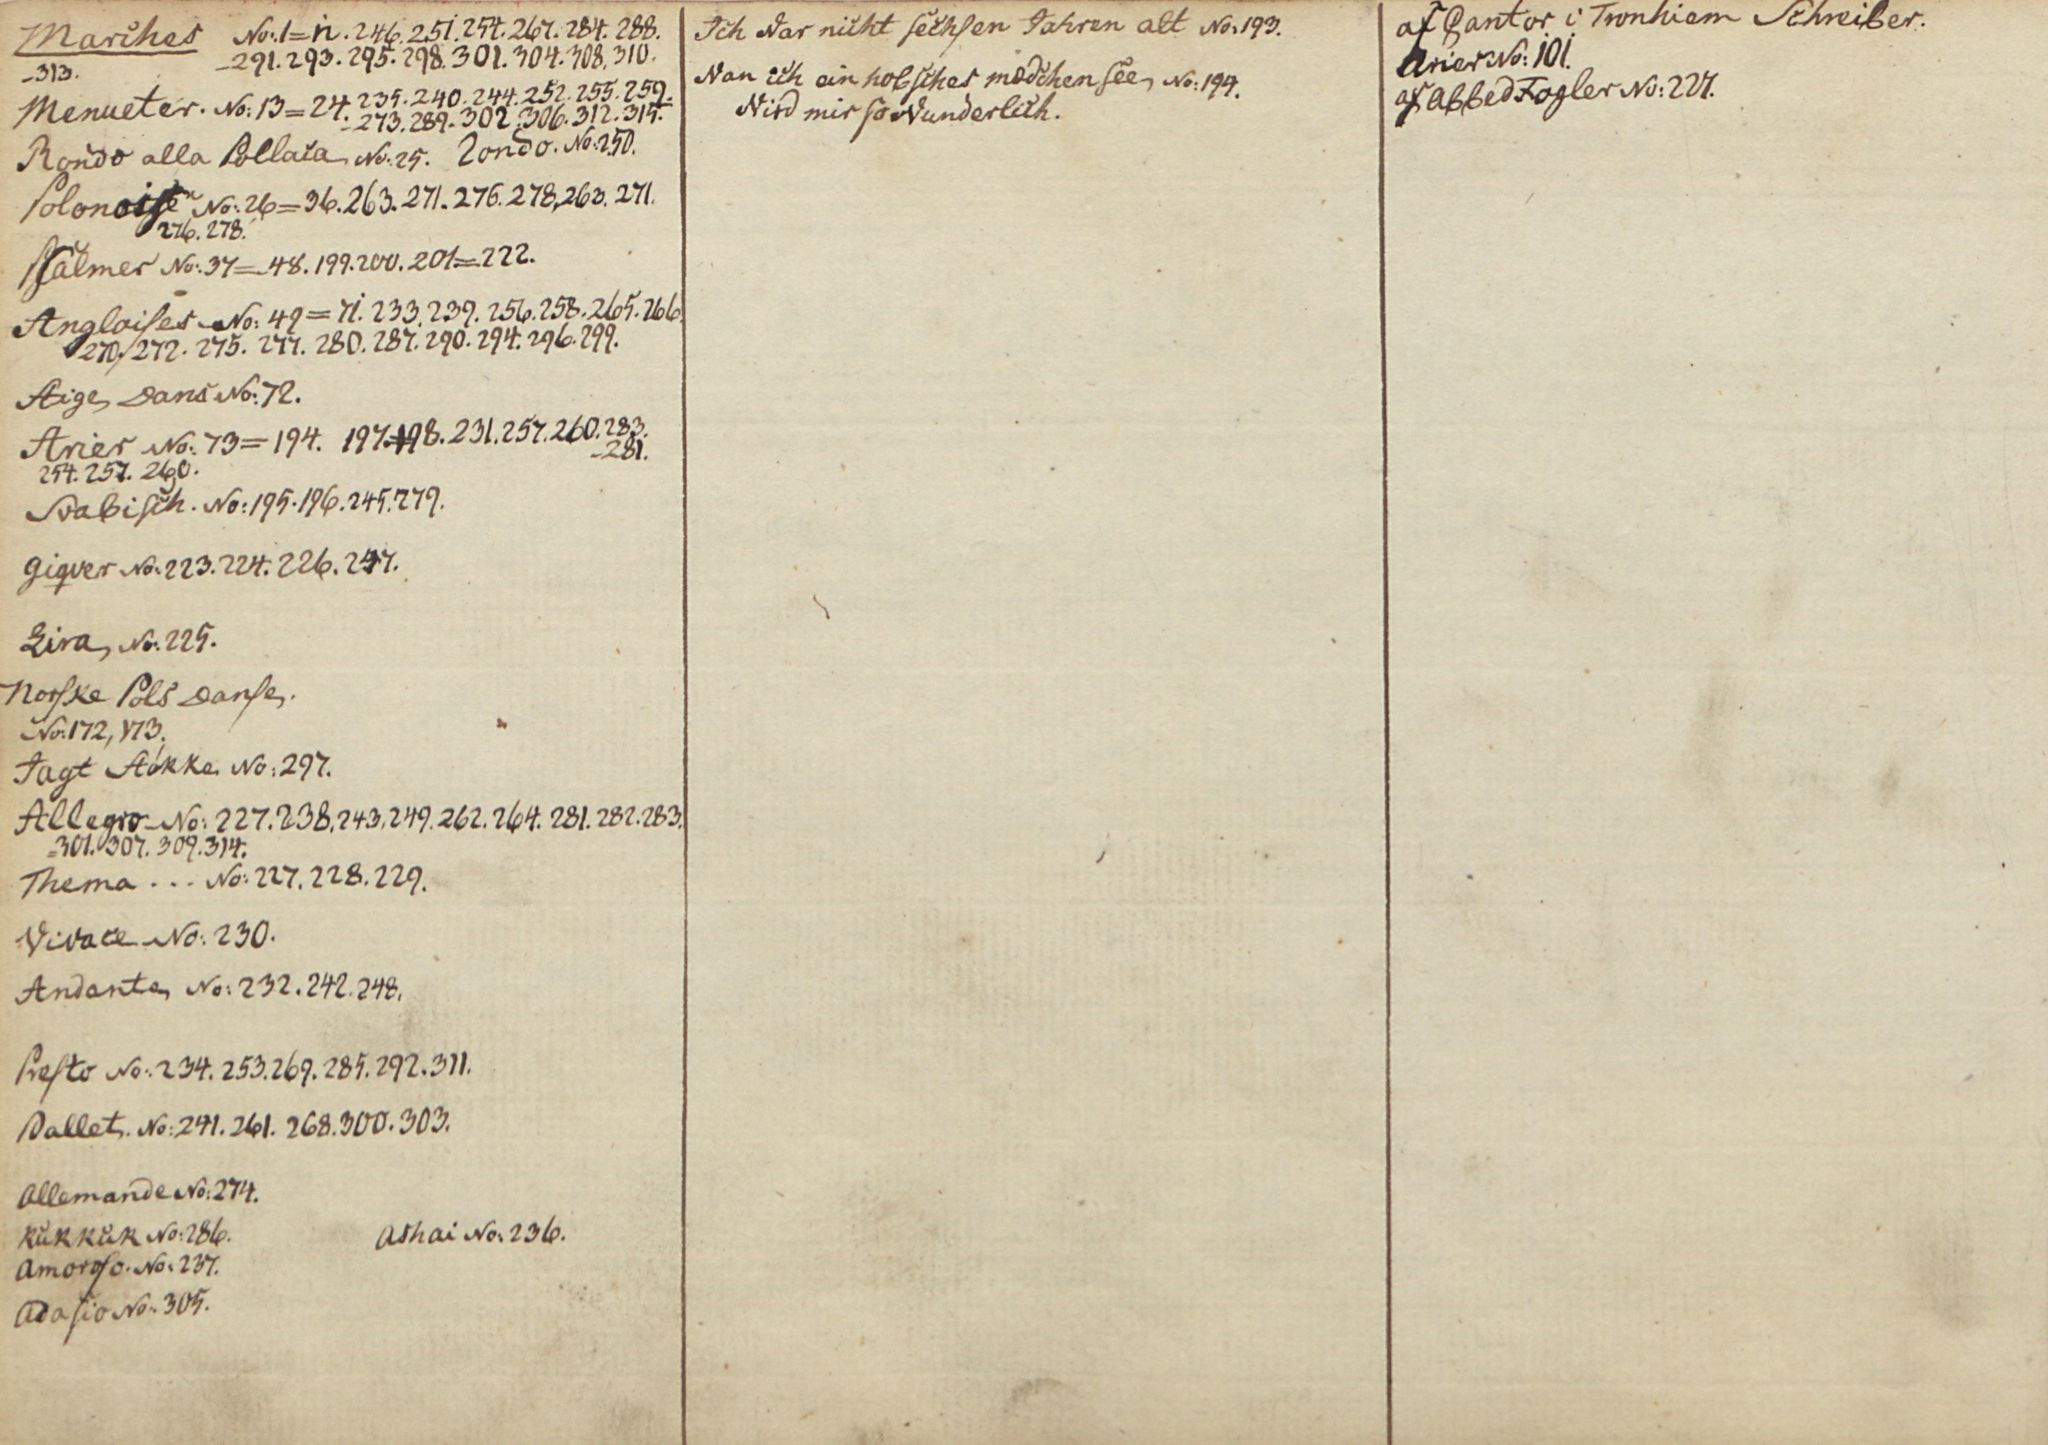 Marches No: 1=11. 246. 251. 254. 267. 284. 288.
-291. 293. 295. 298. 301. 304. 308. 310.
-313.
Menueter. No: 13=24. 235. 240. 244. 252. 255. 259.
-273. 289. 302. 306. 312. 315.
Rondo alla Pollaca No: 25. Rondo. No: 250.
Polonoise No: 26=36. 263. 271. 276. 278, 263. 271.
276. 278.
Psalmer No: 37=48. 199. 200. 201=222.
Angloises No: 49=71. 233. 239. 256. 258. 265. 266.
270. 272. 275. 277. 280. 287. 290. 294. 296. 299.
Aige Dans No: 72.
Arier No: 73=194. 197. 198. 231. 257. 260. 283.
-281.
254. 257. 260.
Svabisch. No: 195. 196. 245. 279.
giqver No: 223. 224. 226. 247.
Lira No: 225.
Norske Pols Danse.
No: 172, 173.
Jagt Støkke No: 297.
Allegro No: 227. 238, 243, 249. 262. 264. 281. 282. 283.
=301. 307. 309. 314.
Thema ... No: 227. 228. 229.
Vivace No: 230.
Andante No: 232. 242. 248.
Presto No: 234. 253. 269. 285. 292. 311.
Ballet. No: 241. 261. 268. 300. 303.
Allemande No: 274.
Kukkuk No: 286. Ashai No: 236.
Amoroso. No: 237.
Adasio No: 305.
Ich var nicht sechsen Jahren alt No. 193.
Van ich ein hobsches mædchen see No: 194.
Vird mir so Vunderlich.
af Cantor i Tronhiem Schreiber.
Arier No: 101.
af Abbed Fogler No: 227.